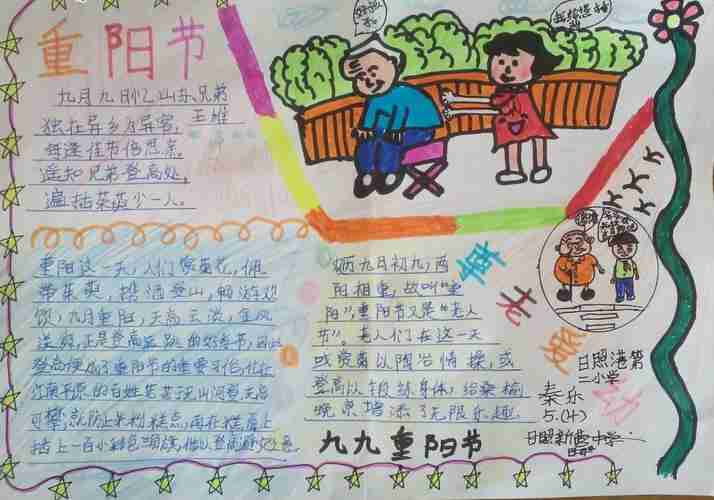 重阳节
九月九日忆山东兄弟
王维
独在异乡为异客，
每逢佳节倍思亲。
遥知兄弟登高处，
遍插茱萸少一人。
重阳这一天，人们赏菊花，佩
带茱萸，携酒登山，畅游欢
饮，九月重阳，天高云淡，金风
送爽，正是登高远眺的好季节，因此
登高便成了重阳节的重要习俗，住在
江南平原的百姓苦于无山可登，无高
可攀，就仿制米粉糕点，再在糕面上
插上一面小彩色三角旗，借以登高
农历九月初九，两
阳相重，故叫"重
阳"重阳节又是"老人
节"。老人们在这一天
或赏菊以陶冶情操，或
登高以锻炼身体，给桑榆
晚景增添了无限乐趣。
尊老爱幼
九九重阳节
日照港第
二小学
秦乐